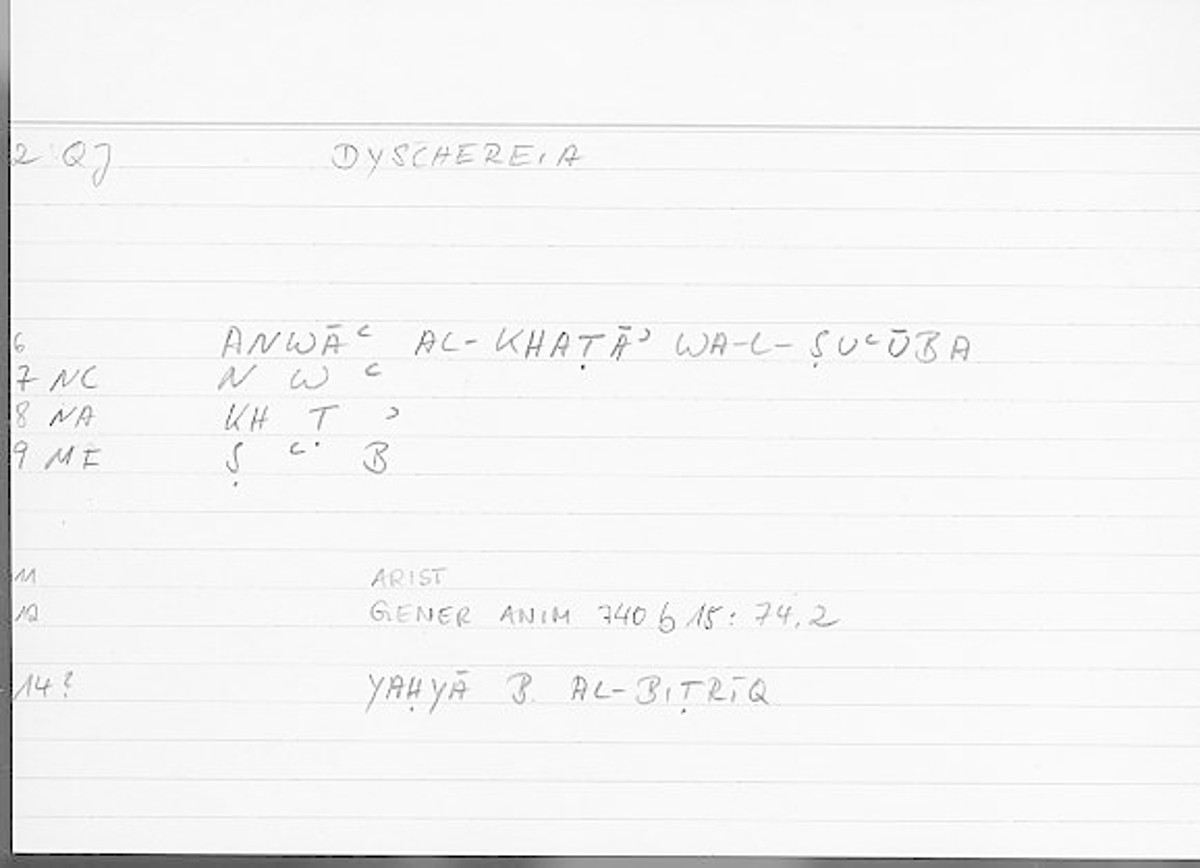 2 QJ DYSCHEREIA
6 ANWĀʿ AL-KHAṬĀʾ WA-L-ṢUʿŪBA
7 NC N W ʿ
8 NA KH Ṭ ʾ
9 ME Ṣ ʿ B
11 ARIST
12 GENER ANIM 740 b 15: 74.2
14? YAḤYĀ B. AL-BIṬRĪQ